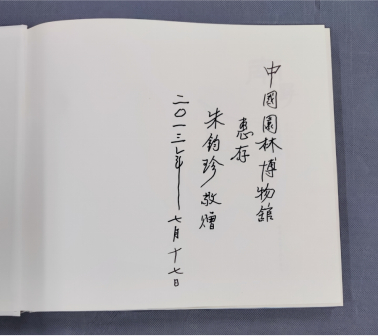 中國園林博物館
惠存
朱鈞珍敬贈
二〇一三年七月十七日